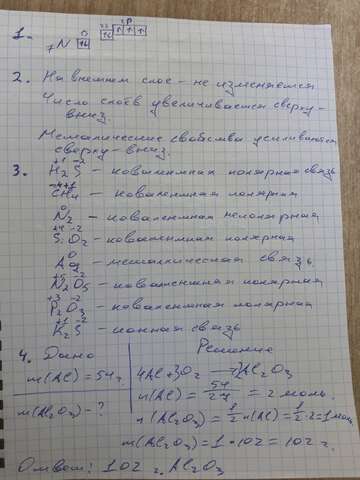 1. ₇N 1s ↑↓ 2s ↑↓ 2p ↑ ↑ ↑
2. На внешнем слое - не изменяется
Число слоёв увеличивается сверху-
вниз.
Металлические свойства усиливаются
сверху-вниз.
3. H₂⁺¹S⁻² - ковалентная полярная связь
C⁻⁴H₄⁺¹ - ковалентная полярная
N₂⁰ - ковалентная неполярная
S⁺⁴O₂⁻² - ковалентная полярная
Ag⁰ - металлическая связь
N₂⁺⁵O₅⁻² - ковалентная полярная
P₂⁺³O₃⁻² - ковалентная полярная
K₂⁺¹S⁻² - ионная связь
4. Дано
m(Al) = 54 г.
m(Al₂O₃) - ?
Решение
4Al+3O₂ → 2Al₂O₃
n(Al) = 54/27 = 2 моль.
n(Al₂O₃) = 1/2 n(Al) = 1/2 · 2 = 1 моль
m(Al₂O₃) = 1 · 102 = 102 г.
Ответ: 102 г. Al₂O₃